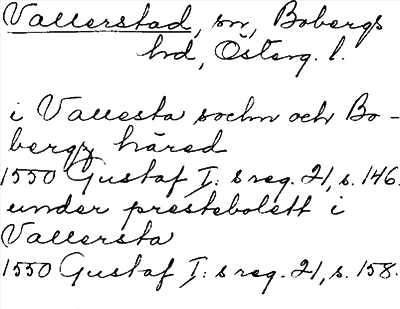 Vallerstad, sn, Bobergs
hd, Österg. l.
i Vallesta sochn och Bo-
bergz härad
1550 Gustaf I: s reg. 21, s. 146.
under prestebolett i
Vallersta
1550 Gustaf I: s reg. 21, s. 158.